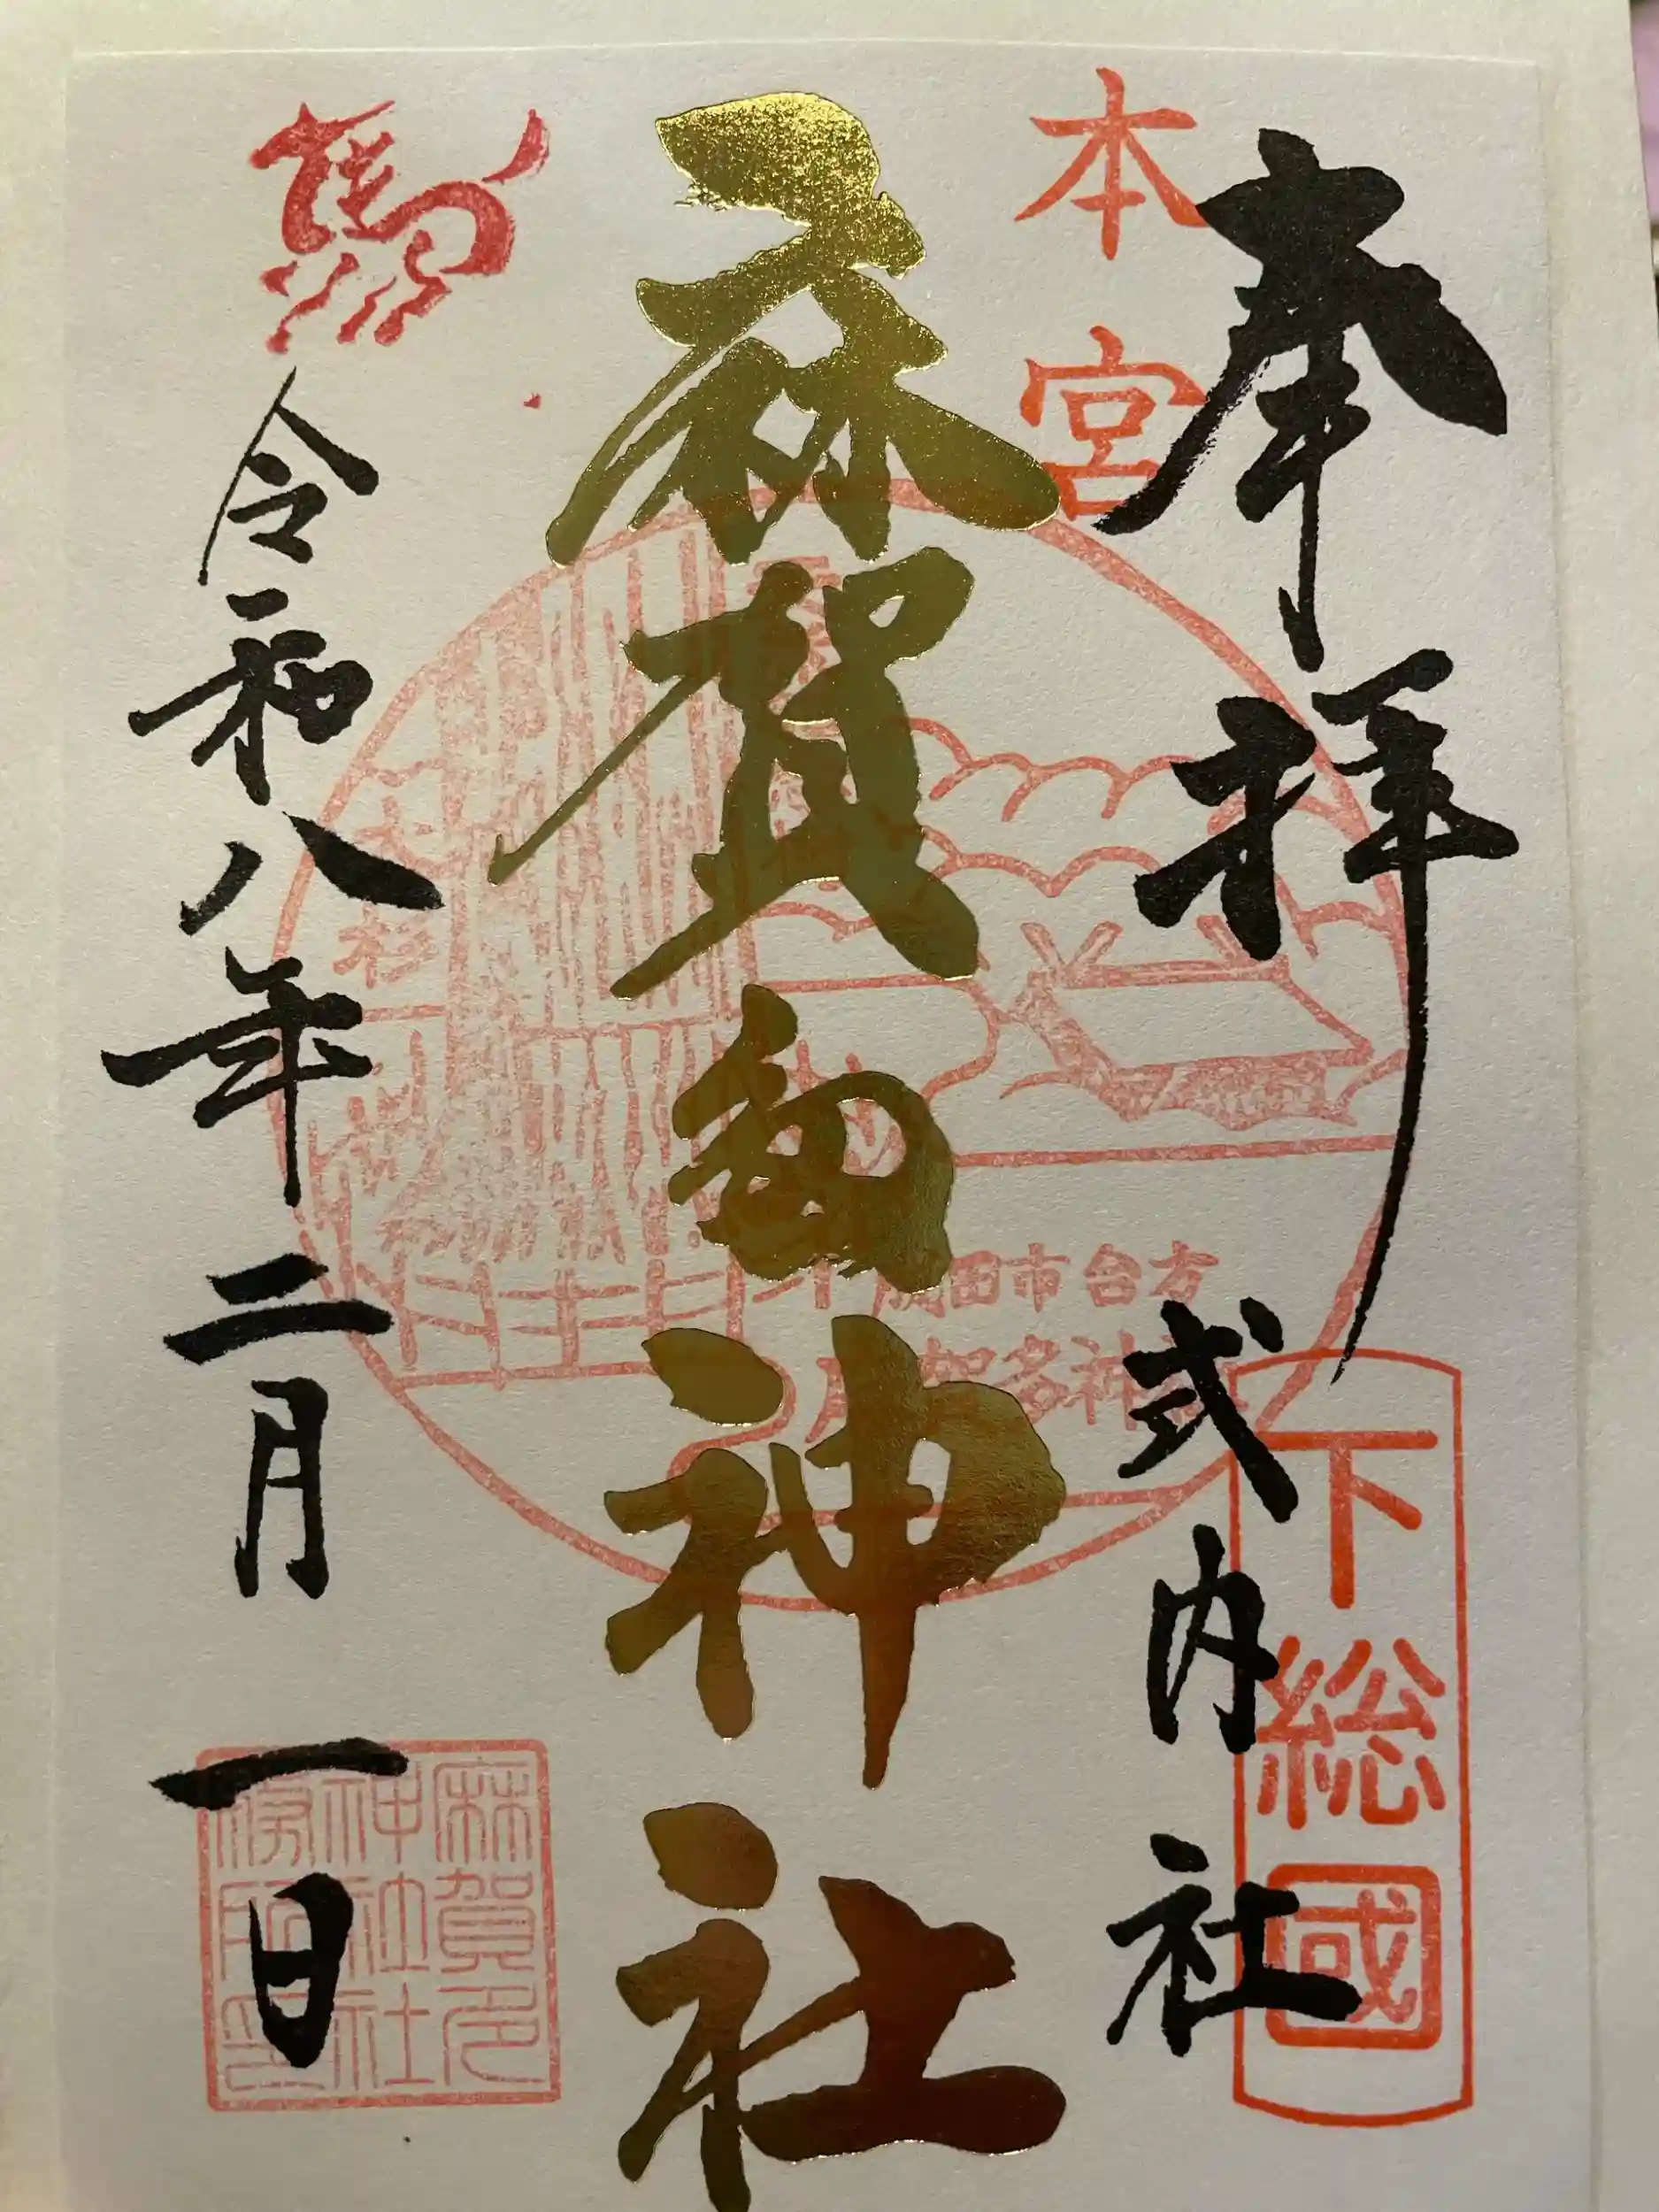 奉拝
式内社
下総國
本宮
麻賀多神社
大杉
成田市台方
麻賀多神社
令和八年二月一日
麻賀多
神社社
務所印